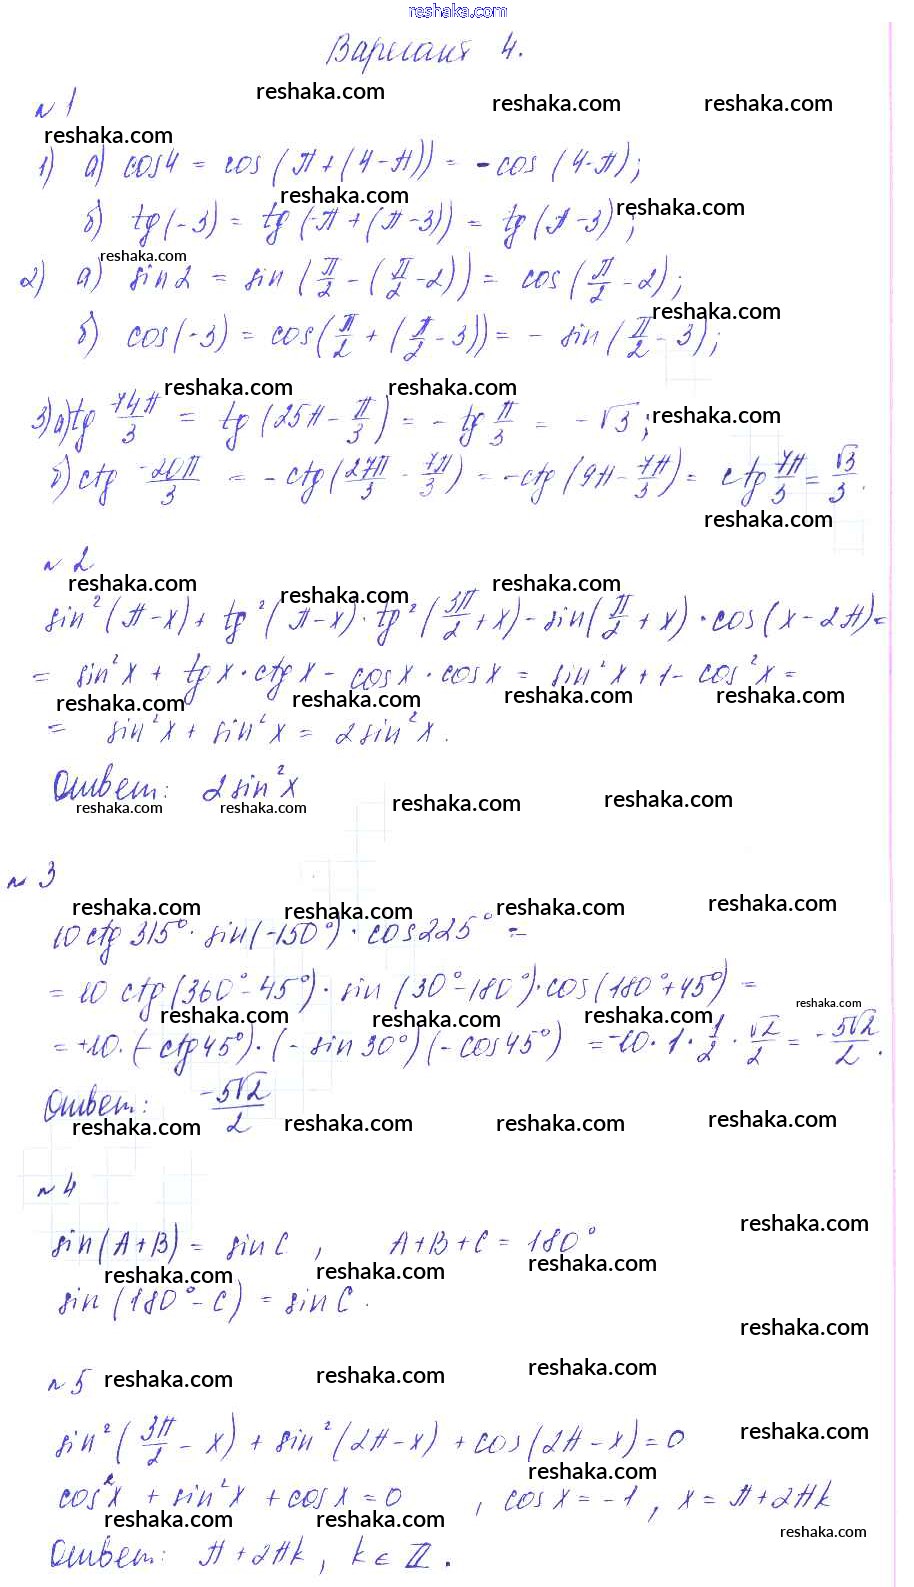 reshaka.com
Вариант 4.
reshaka.com reshaka.com reshaka.com
№ 1
reshaka.com
1) а) cos4 = cos(π+(4-π)) = -cos(4-π);
reshaka.com reshaka.com
б) tg(-3) = tg(-π+(π-3)) = tg(π-3);
reshaka.com
2) а) sin2 = sin(π/2-(π/2-2)) = cos(π/2-2);
reshaka.com
б) cos(-3) = cos(π/2+(π/2-3)) = -sin(π/2-3);
reshaka.com reshaka.com reshaka.com
3) а) tg 74π/3 = tg(25π-π/3) = -tg π/3 = -√3;
б) ctg -20π/3 = -ctg(27π/3-7π/3) = -ctg(9π-7π/3) = ctg 7π/3 = √3/3.
reshaka.com
№ 2
reshaka.com reshaka.com reshaka.com
sin²(π-x)+tg²(π-x)·tg²(3π/2+x)-sin(π/2+x)·cos(x-2π)=
= sin²x+tgx·ctgx-cosx·cosx = sin²x+1-cos²x=
reshaka.com reshaka.com reshaka.com reshaka.com
= sin²x+sin²x = 2sin²x.
Ответ: 2sin²x
reshaka.com reshaka.com reshaka.com reshaka.com
№ 3
reshaka.com reshaka.com reshaka.com reshaka.com
10ctg315°·sin(-150°)·cos225° =
= 10 ctg(360°-45°)·sin(30°-180°)·cos(180°+45°) =
reshaka.com reshaka.com reshaka.com reshaka.com
= +10·(-ctg45°)·(-sin30°)(-cos45°) = -10·1·1/2·√2/2 = -5√2/2.
Ответ: -5√2/2
reshaka.com reshaka.com reshaka.com reshaka.com
№ 4
reshaka.com
sin(A+B) = sinC, A+B+C = 180°
reshaka.com reshaka.com reshaka.com
sin(180°-C) = sinC.
reshaka.com
№ 5 reshaka.com reshaka.com reshaka.com
sin²(3π/2-x)+sin²(2π-x)+cos(2π-x)=0
reshaka.com
reshaka.com
cos²x+sin²x+cosx=0, cosx=-1, x=π+2πk
reshaka.com reshaka.com reshaka.com
Ответ: π+2πk, k∈Z.